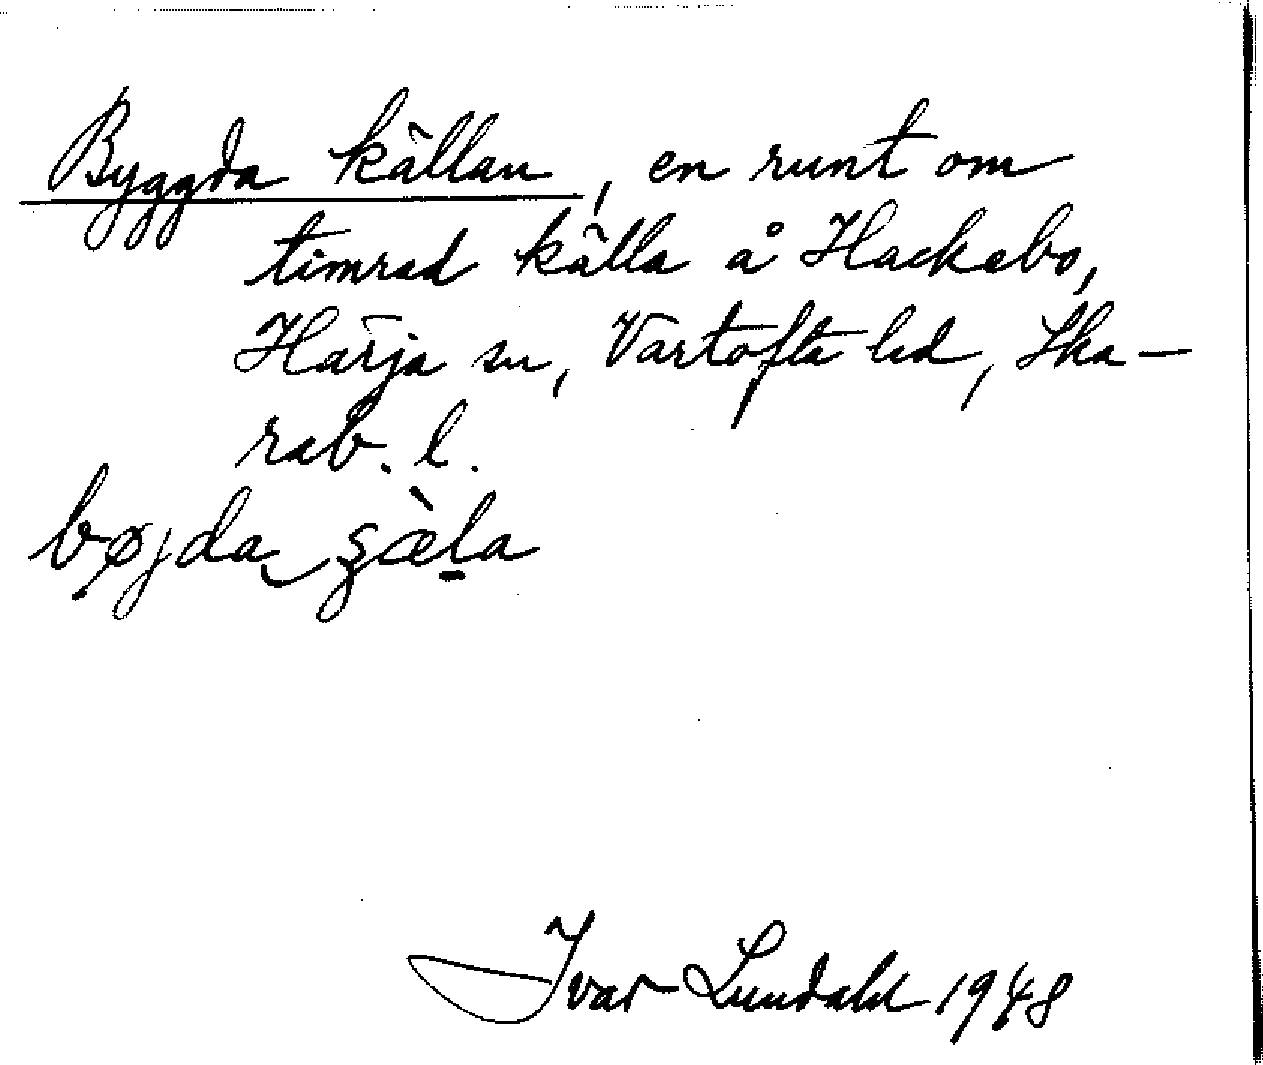 Byggda källan, en runt om
timrad källa å Hackebo,
Härja sn, Vartofta hd, Ska-
rab. l.
bøjda‿ʂæ̀ḻa
Ivar Lundahl 1948